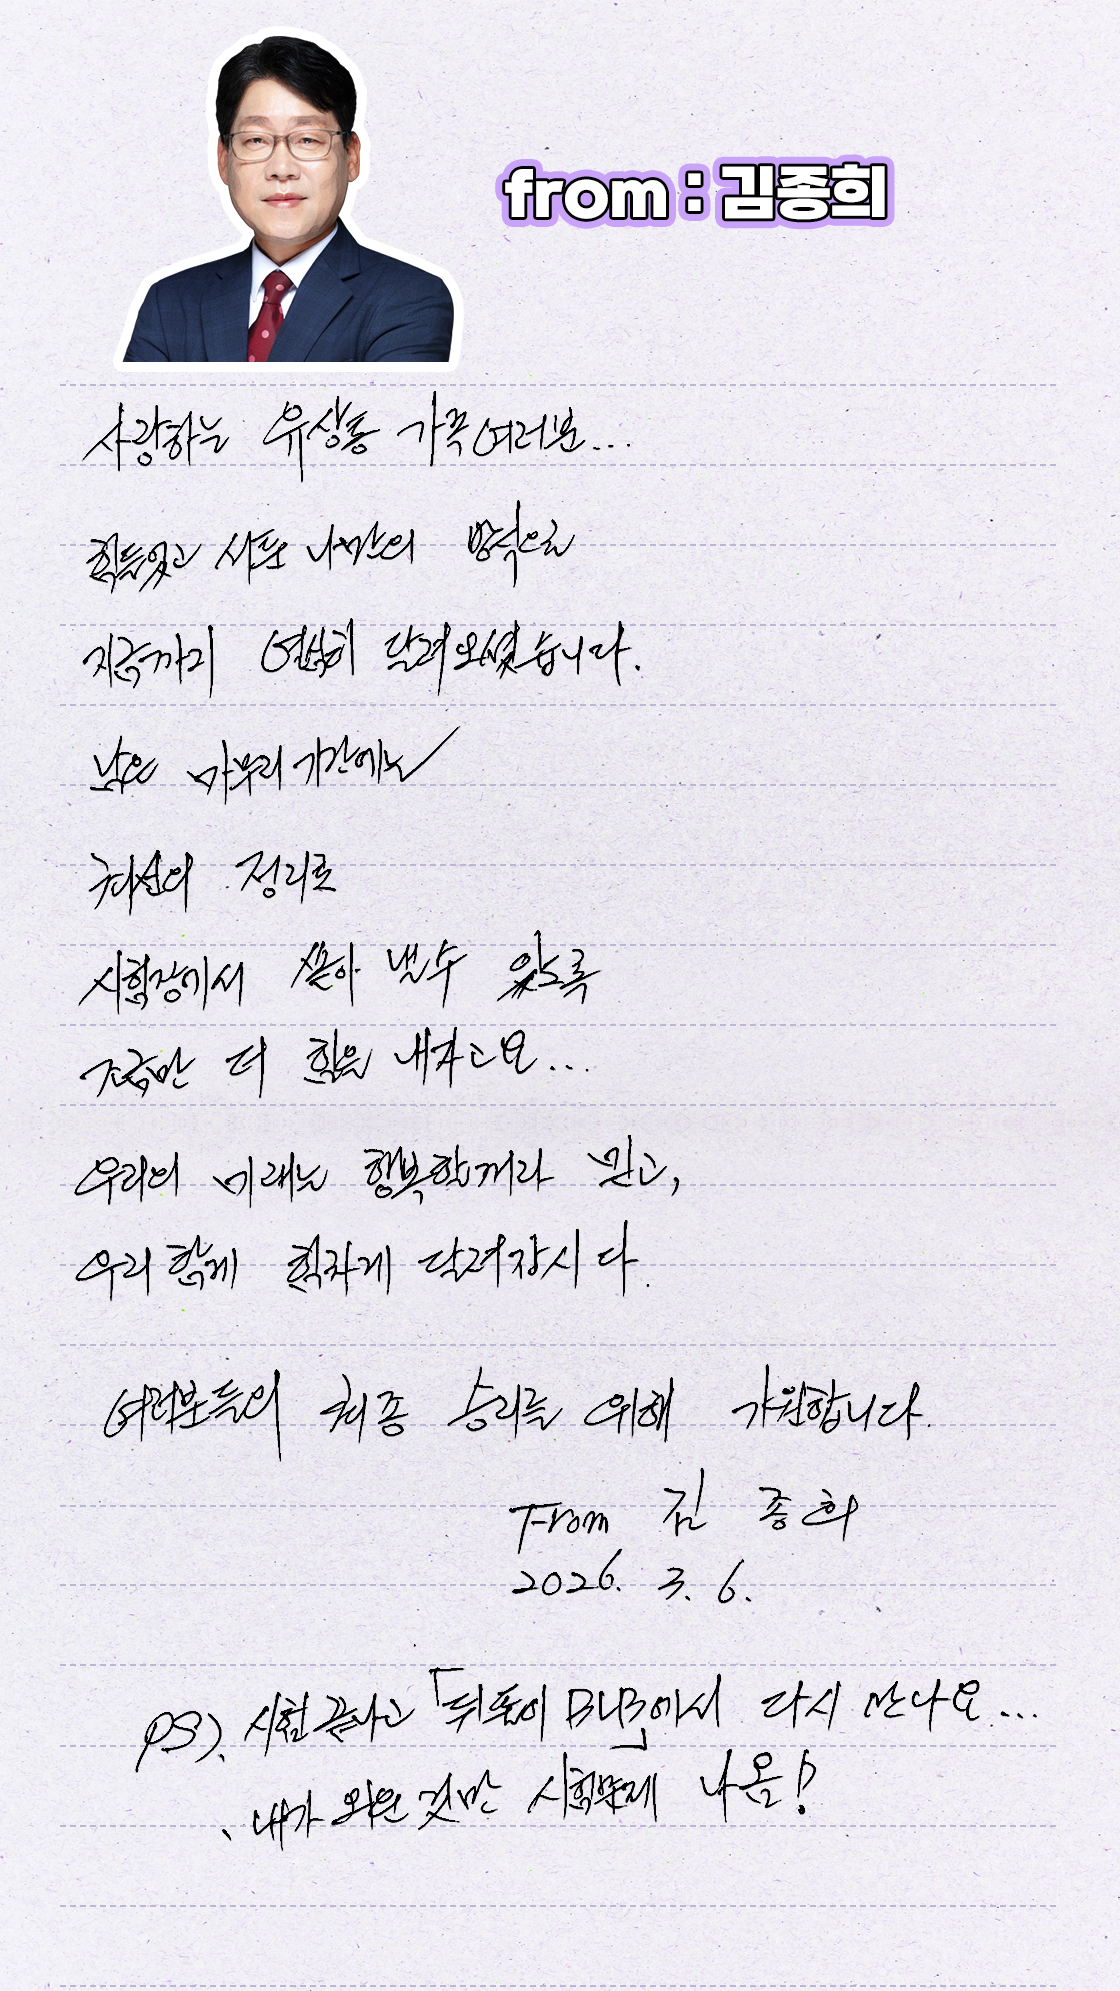 from : 김종희
사랑하는 유상통 가족여러분...
힘들었고 서툰 나만의 방식으로
지금까지 열심히 달려오셨습니다.
남은 마무리 기간에는
최선의 정리로
시험장에서 쏟아 낼 수 있도록
조금만 더 힘을 내자고요...
우리의 미래는 행복할꺼라 믿고,
우리 함께 힘차게 달려갑시다.
여러분들의 최종 승리를 위해 기원합니다.
From 김 종희
2026. 3. 6.
PS). 시험 끝나고 「뒤풀이 BAR」에서 다시 만나요...
내가 외운 것만 시험문제 나옴!